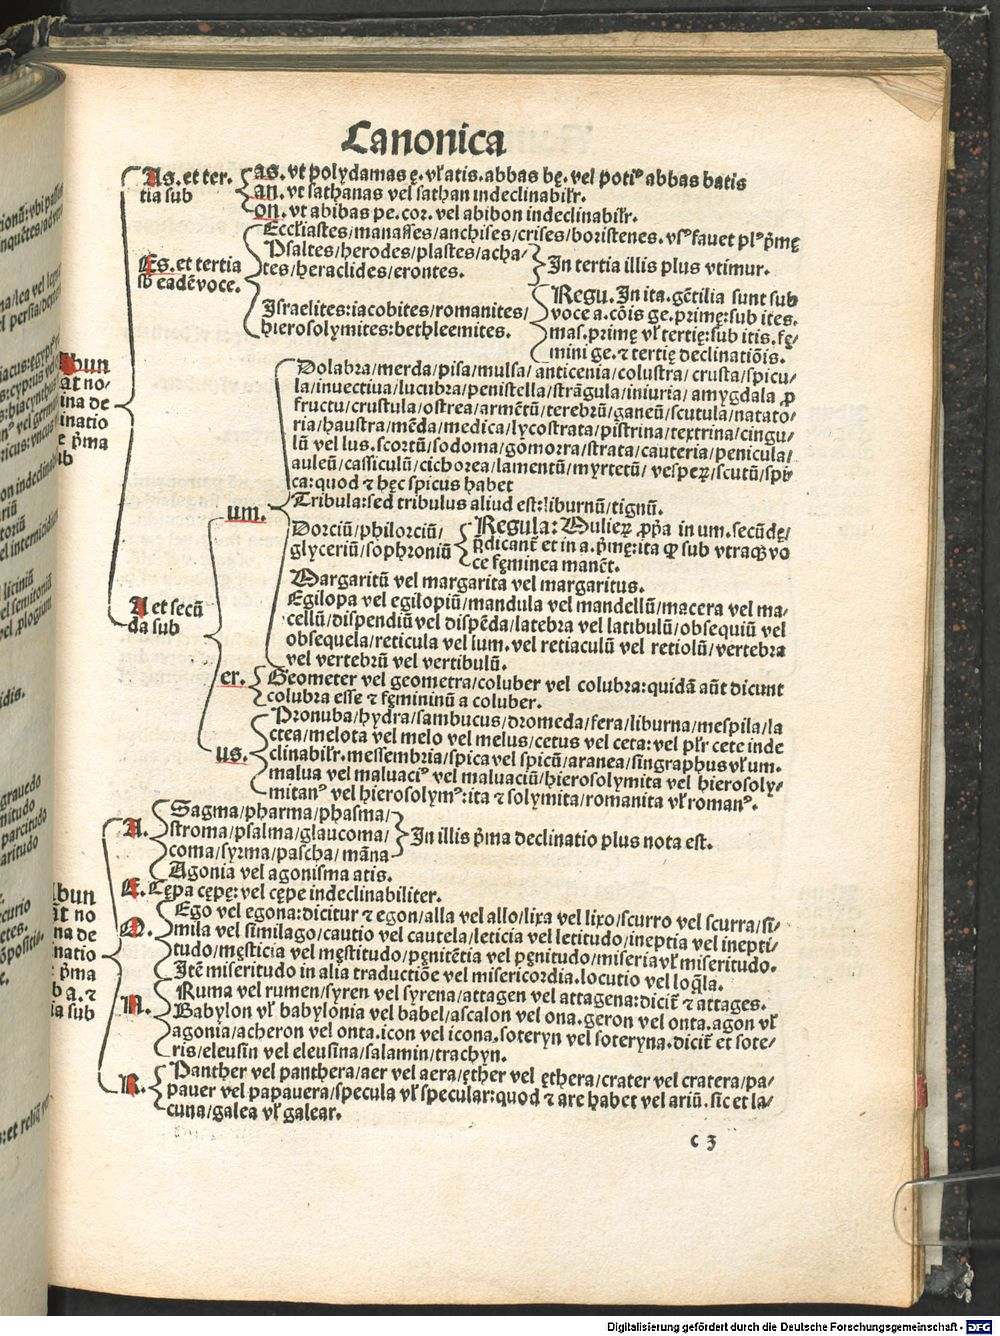 Canonica
As. et ter⸗
tia sub
as. vt polydamas ę. vl̕ atis. abbas bę. vel poti⁹ abbas batis
an. vt sathanas vel sathan indeclinabilr̕.
on. vt abibas pe. cor. vel abibon indeclinabilr̕.
Es. et tertia
sb eadē voce.
Eccliastes/manasses/anchises/crises/boristenes. vs⁹ fauet pl⁹ p̄mę
Psaltes/herodes/plastes/acha⸗
tes/heraclides/erontes.
In tertia illis plus vtimur.
Israelites:iacobites/romanites/
hierosolymites:bethleemites.
Regu. In ita. gētilia sunt sub
voce a. cōis ge. primę: sub ites.
mas. primę vl̕ tertię: sub itis. fę⸗
mini ge. ⁊ tertię declinatiōis.
bun
āt no⸗
ina de
inatio
e p̄ma
ub
A et secū
da sub
um.
Dolabra/merda/pisa/mulsa/anticenia/colustra/crusta/spicu⸗
la/inuectiua/lucubra/penistella/strāgula/iniuria/amygdala ꝓ
fructu/crustula/ostrea/armētū/terebrū/ganeū/scutula/natato⸗
ria/haustra/mēda/medica/lycostrata/pistrina/textrina/cingu⸗
lū vel lus. scortū/sodoma/gomorra/strata/cauteria/penicula/
auleū/cassiculū/cichorea/lamentū/myrtetū/vesperꝝ/scutū/spi⸗
ca:quod ⁊ hęc spicus habet
Tribula:sed tribulus aliud est:liburnū/tignū.
Dorciū/philorciū/
glyceriū/sophroniū
Regula: Mulieꝝ ꝓpa in um. secūdę/
p̄dicant̄ et in a. p̄mę: ita ꝙ sub vtraqꝫ vo
ce fęminea manēt.
Margaritū vel margarita vel margaritus.
Egilopa vel egilopiū/mandula vel mandellū/macera vel ma⸗
cellū/dispendiū vel dispēda/latebra vel latibulū/obsequiū vel
obsequela/reticula vel ium. vel retiaculū vel retiolū/vertebra
vel vertebrū vel vertibulū.
er.
Geometer vel geometra/coluber vel colubra:quidā aūt dicunt
colubra esse ⁊ fęmininū a coluber.
us.
Pronuba/hydra/sambucus/dromeda/fera/liburna/mespila/la
ctea/melota vel melo vel melus/cetus vel ceta: vel plr̕ cete inde
clinabilr̕. messembria/spica vel spicū/aranea/singraphus vl̕ um.
malua vel maluaci⁹ vel maluaciū/hierosolymita vel hierosoly⸗
mitan⁹ vel hierosolym⁹: ita ⁊ solymita/romanita vl̕ roman⁹.
bun
āt no
na de
natio
p̄ma
b a. ⁊
ia sub
A.
Sagma/pharma/phasma/
stroma/psalma/glaucoma/
coma/syrma/pascha/māna
In illis p̄ma declinatio plus nota est.
Agonia vel agonisma atis.
E. Cępa cępę: vel cępe indeclinabiliter.
O.
Ego vel egona:dicitur ⁊ egon/alla vel allo/lixa vel lixo/scurro vel scurra/si⸗
mila vel similago/cautio vel cautela/leticia vel letitudo/ineptia vel inepti⸗
tudo/męsticia vel męstitudo/pęnitētia vel pęnitudo/miseria vl̕ miseritudo.
Itē miseritudo in alia traductiōe vel misericordia. locutio vel loq̄la.
N.
Ruma vel rumen/syren vel syrena/attagen vel attagena:dicit̄ ⁊ attages.
Babylon vl̕ babylonia vel babel/ascalon vel ona. geron vel onta. agon vl̕
agonia/acheron vel onta. icon vel icona. soteryn vel soteryna. dicit̄ et sote⸗
ris/eleusin vel eleusina/salamin/trachyn.
R.
Panther vel panthera/aer vel aera/ęther vel ęthera/crater vel cratera/pa⸗
pauer vel papauera/specula vl̕ specular:quod ⁊ are habet vel ariū. sic et la⸗
cuna/galea vl̕ galear.
c 3
Digitalisierung gefördert durch die Deutsche Forschungsgemeinschaft - DFG